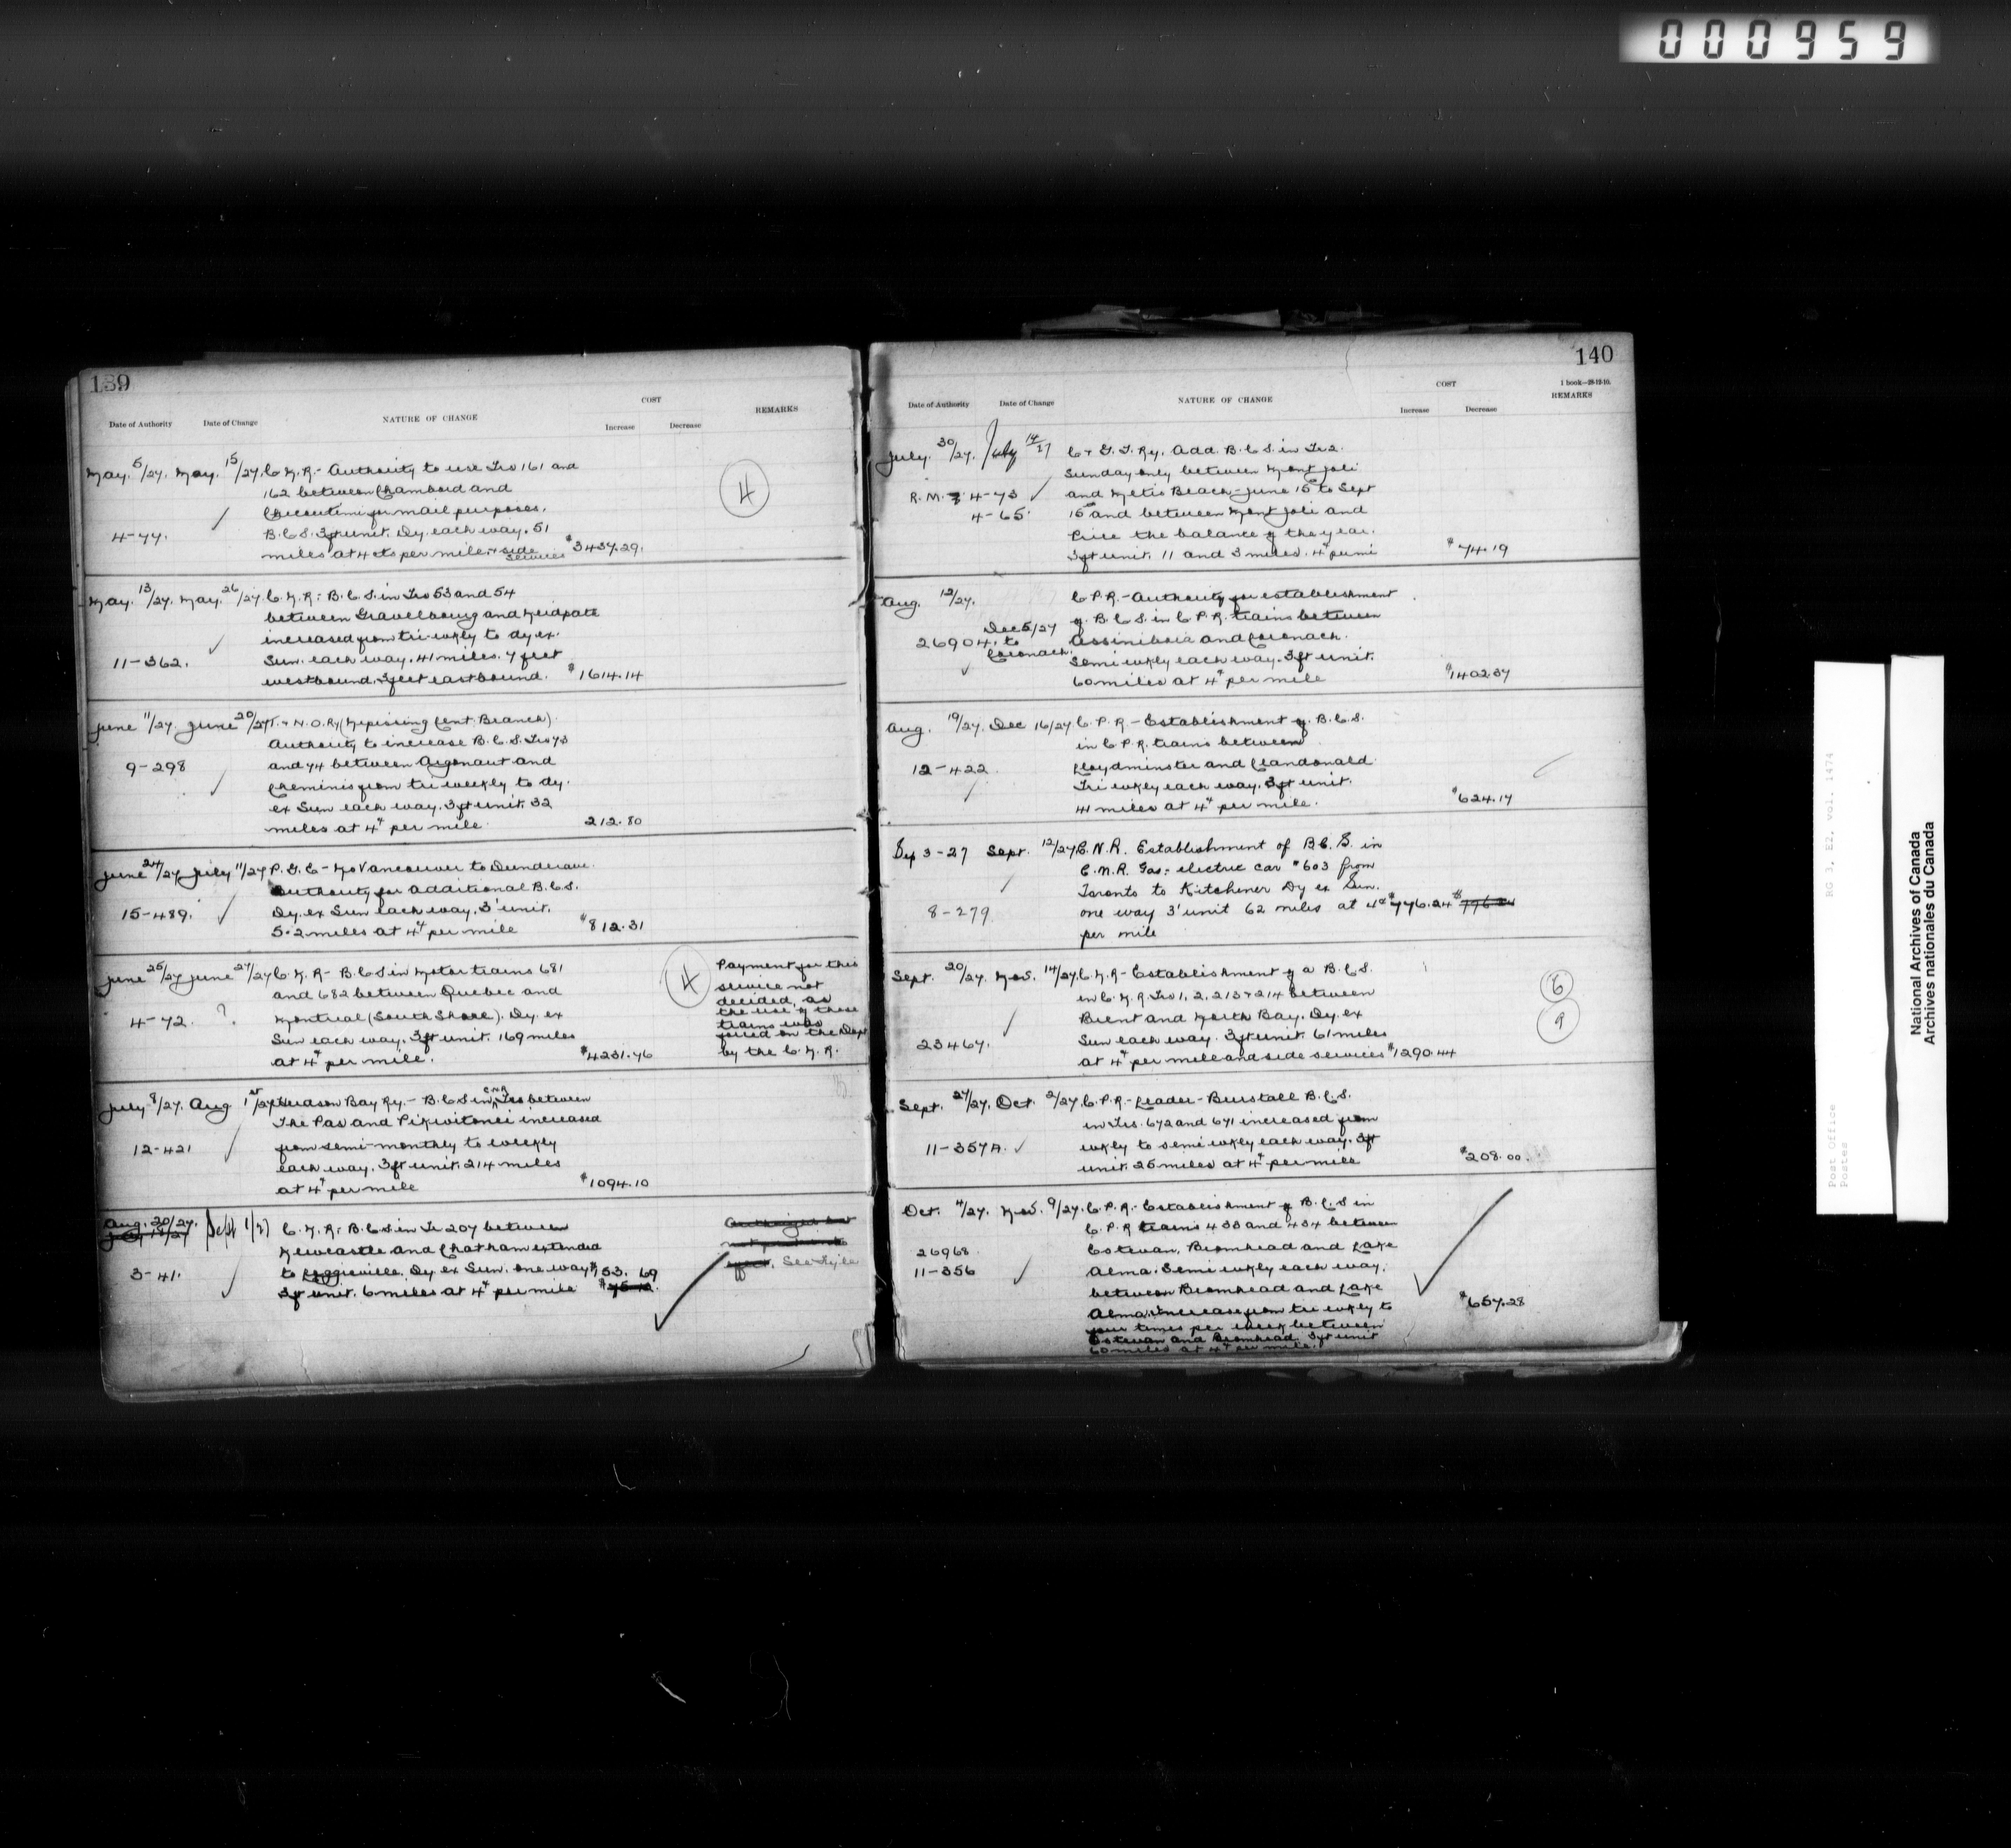 000959
139
COST
Date of Authority Date of Change NATURE OF CHANGE Increase Decrease REMARKS
May 5/27. May. 15/27. C.N.R.- Authority to use Trs 161 and
162 between Chambord and
Chicoutimi for mail purposes.
4-77. B.C.S. 3ft unit. Dy. each way. 51
miles at 4 cts per mile. + side services $3437.29.
4
May. 13/27. May. 26/27. C.N.R: B.C.S. in Trs 53 and 54
between Gravelbourg and Neidpath
increased from tri-wkly to dy. ex.
11-362. Sun. each way. 41 miles. 7 feet
westbound, 3 feet eastbound. $1614.14
June 11/27. June 20/27 T. & N.O. Ry (Nipissing Cent. Branch).
Authority to increase B.C.S. Trs 73
9-298 and 74 between Argonaut and
Cheminis from tri weekly to dy.
ex Sun each way. 3ft unit. 32
miles at 4¢ per mile 212.80
June 24/27 July 11/27 P.G.E - No Vancouver to Dundarave.
Authority for additional B.C.S.
15-489. Dy. ex Sun each way. 3' unit.
5.2 miles at 4¢ per mile $812.31
June 25/27 June 27/27 C.N.R- B.C.S in Motor trains 681
and 682 between Quebec and
4-72. ? Montreal (South Shore). Dy. ex
Sun each way. 3ft unit. 169 miles
at 4¢ per mile. $4231.76
4
Payment for this
service not
decided, as
the use of these
trains was
forced on the Dept
by the C.N.R.
July 8/27. Aug 1st/27 Hudson Bay Ry.- B.C.S in C.N.R Trs between
The Pas and Pikwitonei increased
12-421 from semi-monthly to weekly
each way. 3ft unit. 214 miles
at 4¢ per mile $1094.10
Aug. 20/27. Sept 1/27 C.N.R: B.C.S in Tr 207 between
Newcastle and Chatham extended
3-41. to Loggieville. Dy ex Sun. one way $53.69
3ft unit. 6 miles at 4¢ per mile
effect. See File
140
1 book-28-12-10.
COST
Date of Authority Date of Change NATURE OF CHANGE Increase Decrease REMARKS
July. 30/27. July 14/27 C. & G.T. Ry. Add. B.C.S. in Tr 2.
Sunday only between Mont Joli
R.M. 4-73 and Metis Beach- June 15 to Sept
4-65. 15 and between Mont Joli and
Price the balance of the year.
3ft unit. 11 and 3 miles. 4¢ per mi $74.19
Aug. 12/27. C.P.R.- Authority for establishment
of B.C.S. in C.P.R. trains between
26904. Dec 5/27 to Coronach. Assiniboia and Coronach.
Semi wkly each way. 3ft unit.
60 miles at 4¢ per mile $1402.37
Aug. 19/27. Dec 16/27 C.P.R.- Establishment of B.C.S.
in C.P.R. trains between
12-422 Lloydminster and Clandonald
Tri wkly each way. 3ft unit.
41 miles at 4¢ per mile. $624.17
Sep 3-27 Sept. 12/27 C.N.R. Establishment of B.C.S. in
C.N.R. Gas-electric car #603 from
Toronto to Kitchener Dy ex Sun.
8-279 one way 3' unit 62 miles at 4¢ $776.24 $776.24
per mile
Sept. 20/27. Nov. 14/27. C.N.R- Establishment of a B.C.S.
in C.N.R. Trs 1, 2, 213 & 214 between
Brent and North Bay. Dy. ex
23467. Sun each way. 3ft unit. 61 miles
at 4¢ per mile and side services $1290.44
6
9
Sept. 27/27. Oct. 2/27. C.P.R.- Leader-Burstall B.C.S.
in Trs. 672 and 671 increased from
11-357A. wkly to semi wkly each way. 3ft
unit. 25 miles at 4¢ per mile $208.00.
Oct. 4/27. Nov. 9/27. C.P.R.- Establishment of B.C.S in
C.P.R trains 433 and 434 between
26968 Estevan, Bromhead and Lake
11-356 Alma. Semi wkly each way,
between Bromhead and Lake
Alma. Increase from tri wkly to
four times per week between
Estevan and Bromhead. 3ft unit
60 miles at 4¢ per mile. $657.28
Post Office
Postes
RG 3, E2, vol. 1474
National Archives of Canada
Archives nationales du Canada